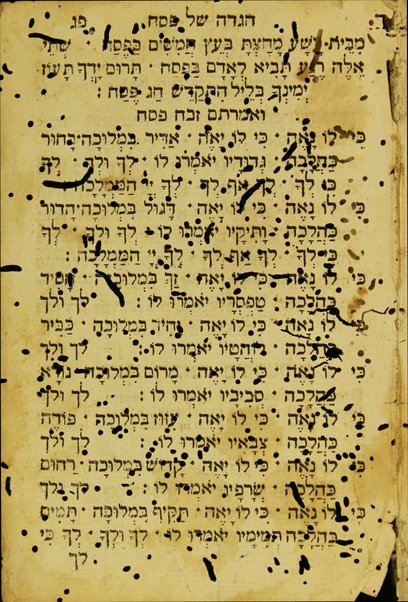 הגדה של פסח פג
מִבֵּית רָשָׁע מָחַצְתָּ בְּעֵץ חֲמִשִּׁים בַּפֶּסַח · שְׁתֵּי
אֵלֶּה רֶגַע תָּבִיא לְאָדָם בַּפֶּסַח · תָּרוּם יָדְךָ תָּעוֹז
יְמִינְךָ בְּלֵיל הִתְקַדֵּשׁ חַג פֶּסַח :
ואמרתם זבח פסח
כִּי לוֹ נָאֶה · כִּי לוֹ יָאֶה · אַדִּיר בִּמְלוּכָה · בָּחוּר
כַּהֲלָכָה · גְּדוּדָיו יֹאמְרוּ לוֹ · לְךָ וּלְךָ · לְךָ
כִּי לְךָ · לְךָ אַף לְךָ · לְךָ יְיָ הַמַּמְלָכָה :
כִּי לוֹ נָאֶה · כִּי לוֹ יָאֶה · דָּגוּל בִּמְלוּכָה · הָדוּר
כַּהֲלָכָה · וָתִיקָיו יֹאמְרוּ לוֹ · לְךָ וּלְךָ · לְךָ
כִּי לְךָ · לְךָ אַף לְךָ · לְךָ יְיָ הַמַּמְלָכָה :
כִּי לוֹ נָאֶה · כִּי לוֹ יָאֶה · זַךְ בִּמְלוּכָה · חָסִיד
כַּהֲלָכָה · טַפְסְרָיו יֹאמְרוּ לוֹ : לך ולך
כִּי לוֹ נָאֶה · כִּי לוֹ יָאֶה · יָחִיד בִּמְלוּכָה · כַּבִּיר
כַּהֲלָכָה · יֹאמְרוּ לוֹ : לך ולך
כִּי לוֹ נָאֶה · כִּי לוֹ יָאֶה · מָרוֹם בִּמְלוּכָה · נוֹרָא
כַּהֲלָכָה · סְבִיבָיו יֹאמְרוּ לוֹ : לך ולך
כִּי לוֹ נָאֶה · כִּי לוֹ יָאֶה · עִזּוּז בִּמְלוּכָה · פּוֹדֶה
כַּהֲלָכָה · צְבָאָיו יֹאמְרוּ לוֹ : לך ולך
כִּי לוֹ נָאֶה · כִּי לוֹ יָאֶה · קָדוֹשׁ בִּמְלוּכָה · רַחוּם
כַּהֲלָכָה · שְׂרָפָיו יֹאמְרוּ לוֹ : לך ולך
כִּי לוֹ נָאֶה · כִּי לוֹ יָאֶה · תַּקִּיף בִּמְלוּכָה · תָּמִים
כַּהֲלָכָה תְּמִימָיו יֹאמְרוּ לוֹ · לְךָ וּלְךָ · לְךָ כִּי
לך